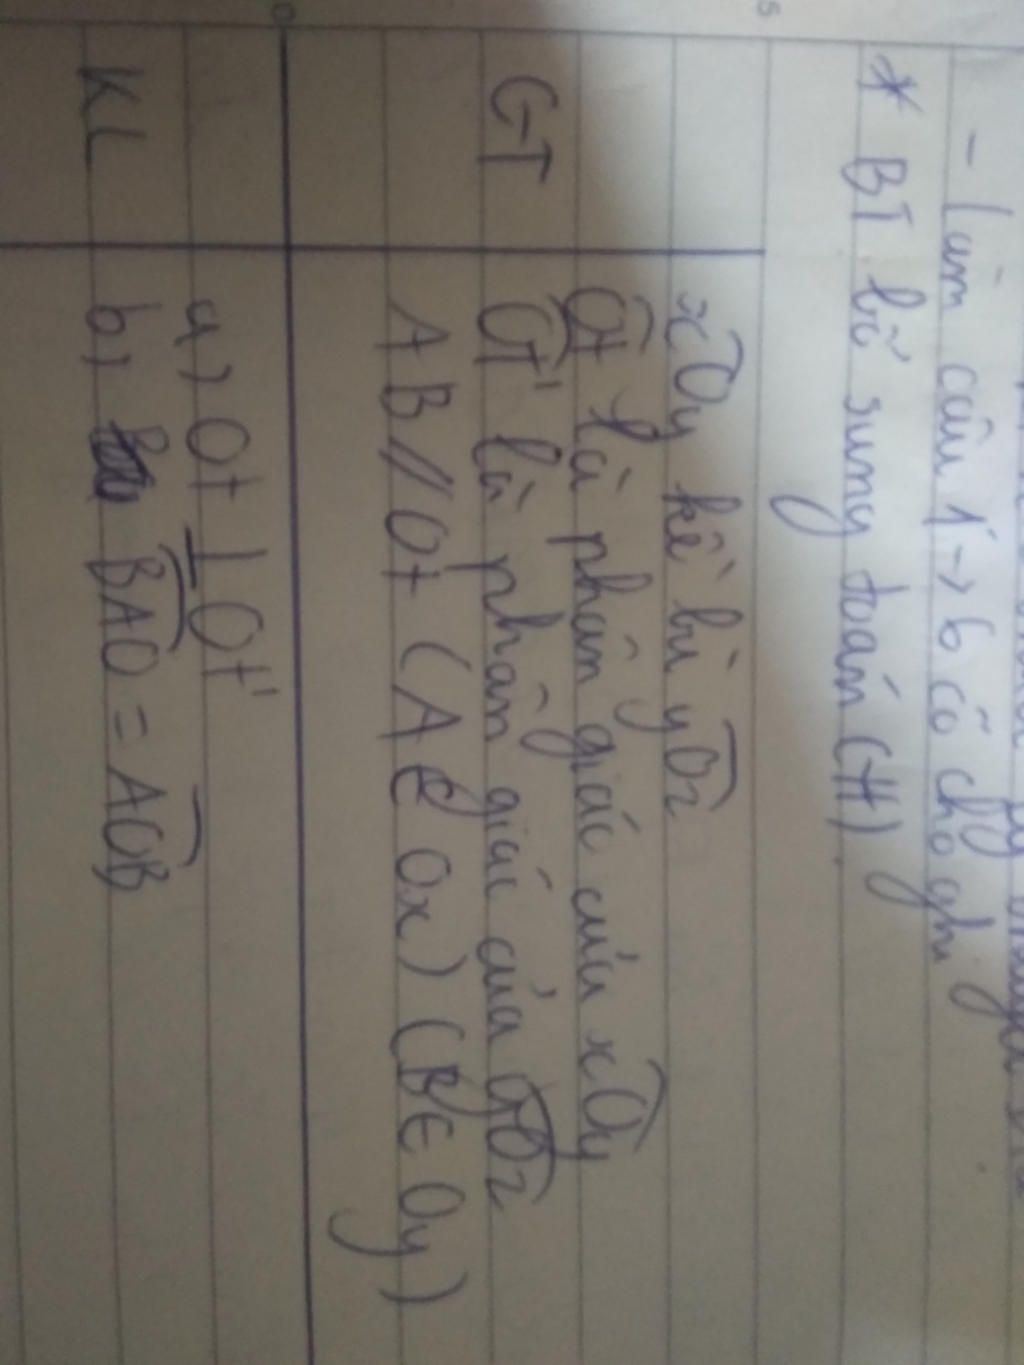 - Làm câu 1 → 6 có chỗ ghi
* BT bổ sung toán (H).
GT
xOy kề bù yOz
Ot là phân giác của xOy
Ot' là phân giác của yOz
AB // Ot (A ∈ Ox) (B ∈ Oy)
KL
a) Ot ⊥ Ot'
b) BAO = AOB